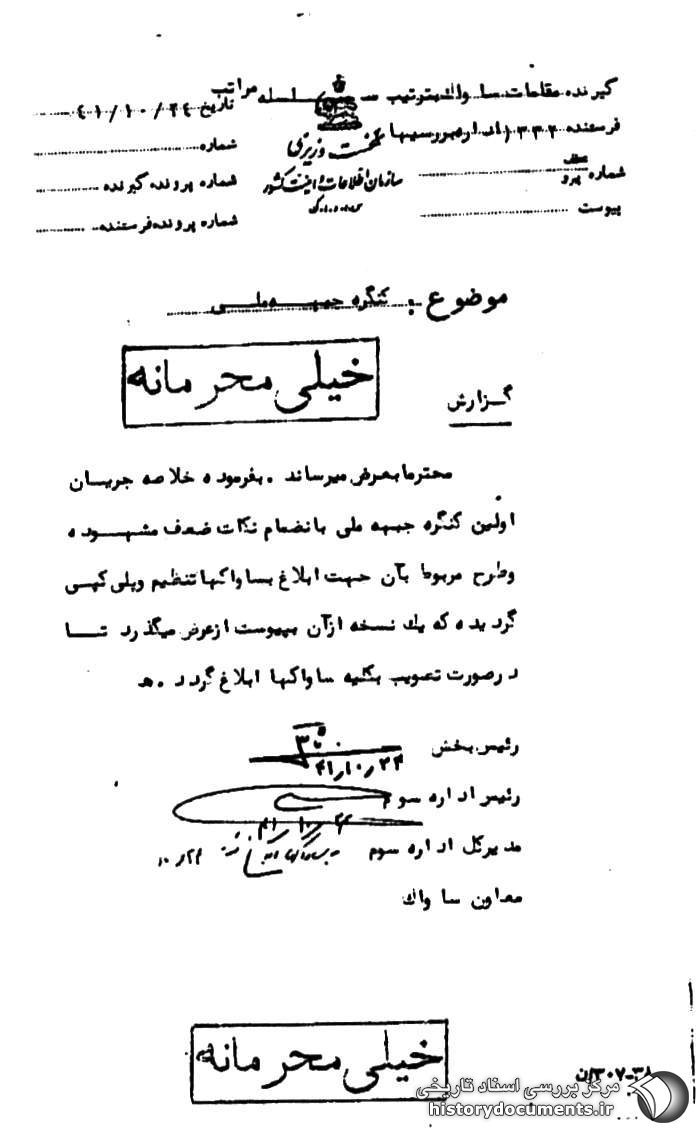 گیرنده مقامات ساواک بترتیب سلسله مراتب
تاریخ ۴۱/۱۰/۲۴
فرستنده ۳۳۲ (از اداره بررسیها)
شماره
نخست وزیری
شماره پرونده گیرنده
سازمان اطلاعات و امنیت کشور
شماره پیرو
س.ا.و.ا.ک
شماره پرونده فرستنده
پیوست
موضوع : کنگره جبهه ملی
خیلی محرمانه
گزارش
محترما بعرض میرساند . بفرموده خلاصه جریان
اولین کنگره جبهه ملی بانضمام نکات ضعف مشهوده
وطرح مربوط بآن جهت ابلاغ بساواکها تنظیم وپلی کپی
گردیده که یک نسخه ازآن بپیوست ازعرض میگذرد تا
درصورت تصویب بکلیه ساواکها ابلاغ گردد .ه
رئیس بخش
۴۱/۱۰/۲۴
رئیس اداره سوم
مدیرکل اداره سوم
معاون ساواک
خیلی محرمانه
۳۰۷-۳۸/ن
مرکز بررسی اسناد تاریخی
historydocuments.ir